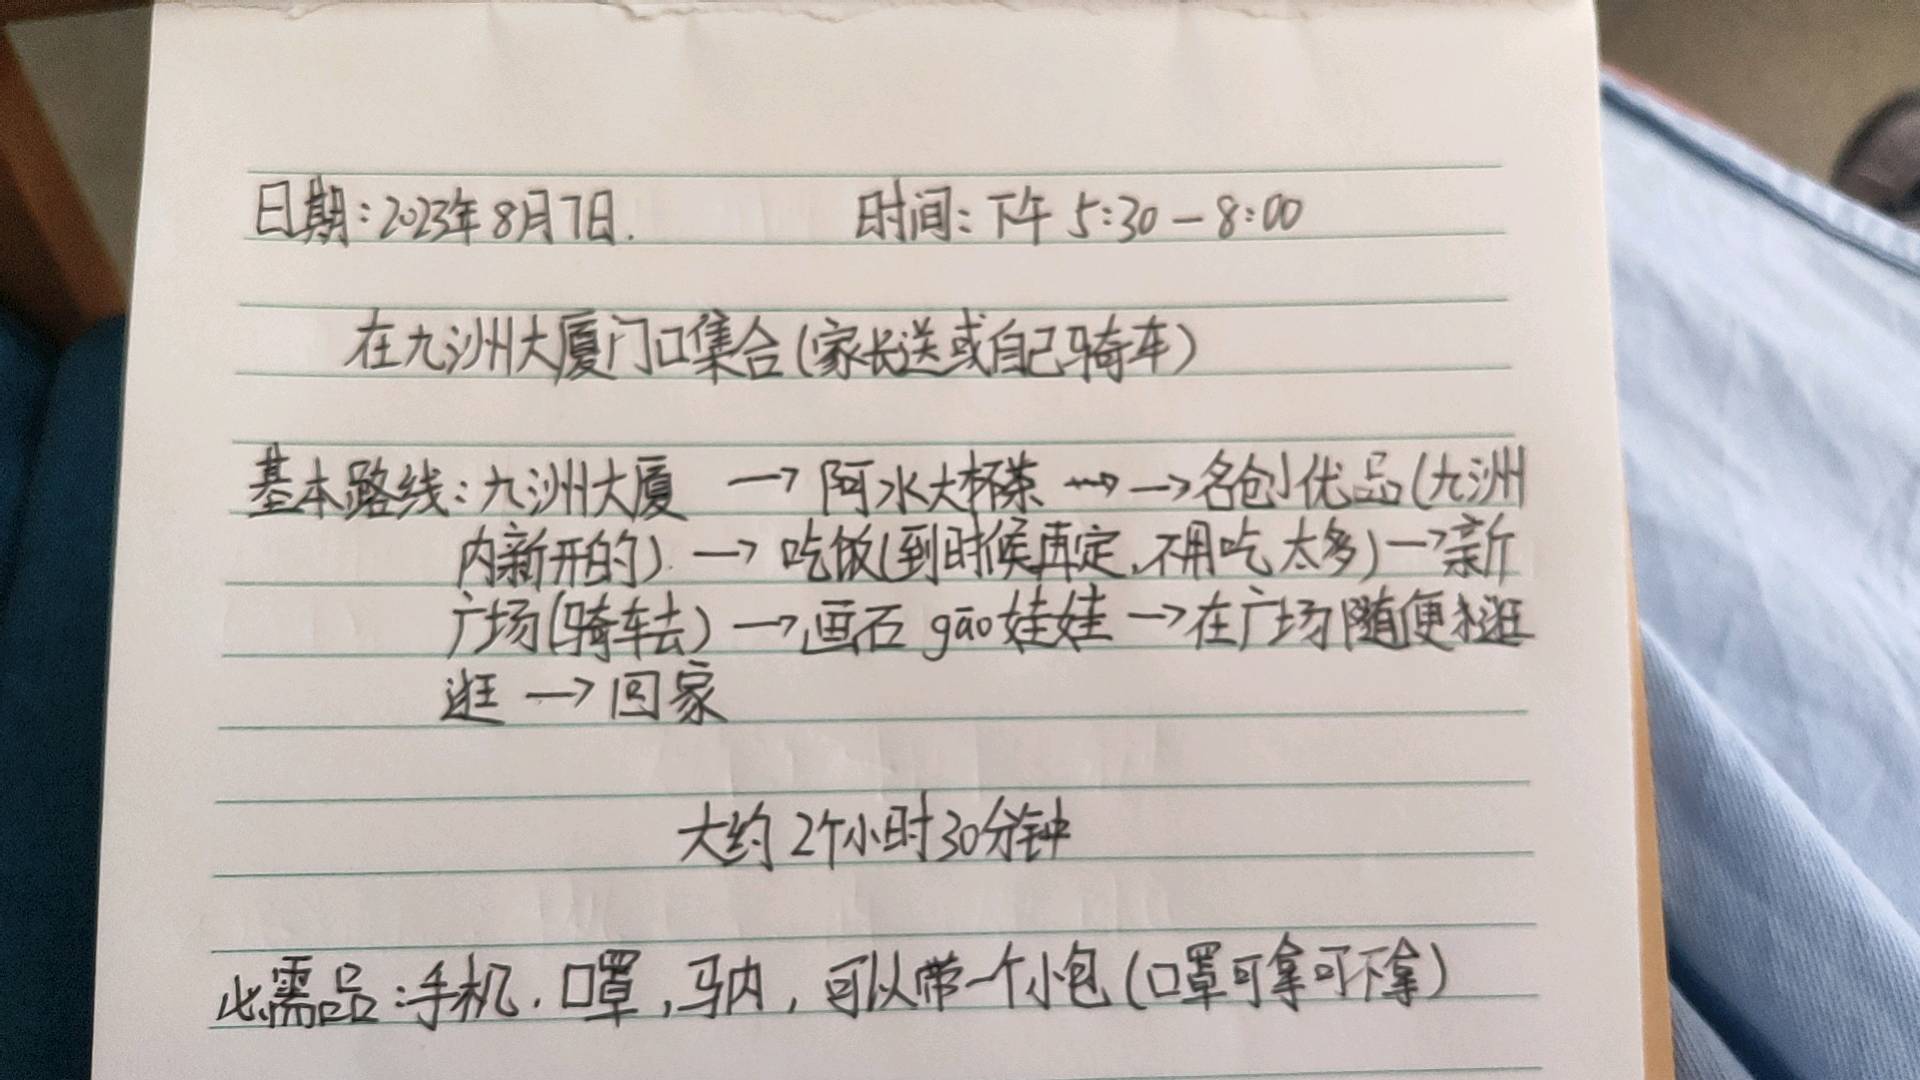 日期：2023年8月7日. 时间：下午 5:30－8:00
在九洲大厦门口集合（家长送或自己骑车）
基本路线：九洲大厦 → 阿水大杯茶 → 名创优品（九洲
内新开的）. → 吃饭（到时候再定，不用吃太多）→新
广场（骑车去）→画石gāo娃娃→在广场随便逛
逛 → 回家
大约 2个小时30分钟
必需品：手机，口罩，马内，可以带一个小包（口罩可拿可不拿）